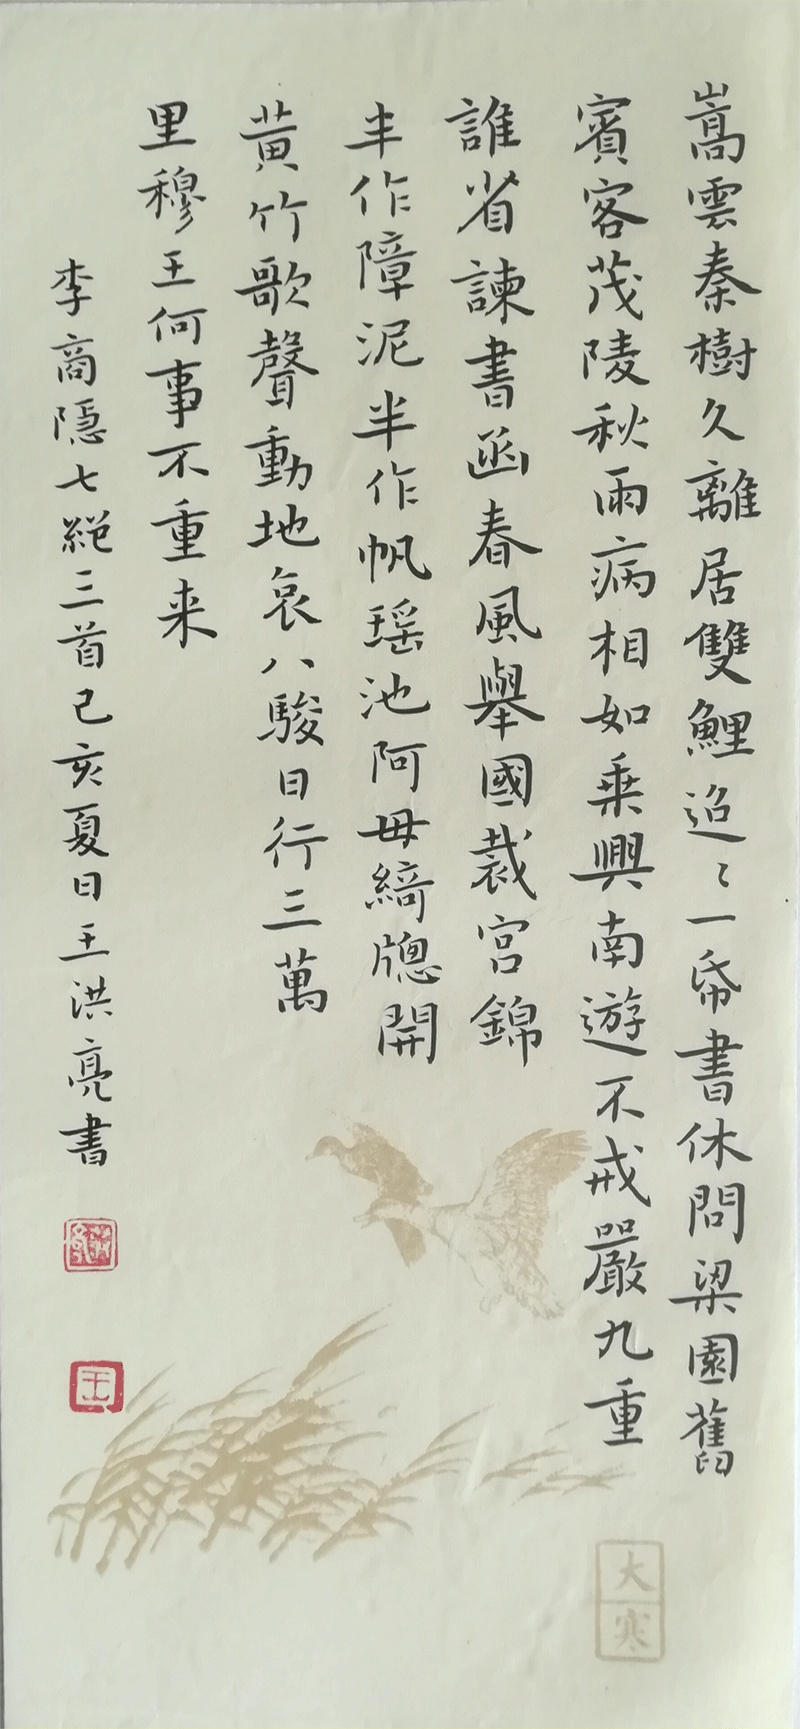 嵩雲秦樹久離居雙鯉迢〻一帋書休問梁園舊
賓客茂陵秋雨病相如乗興南遊不戒嚴九重
誰省諫書函春風舉國裁宮錦
半作障泥半作帆瑶池阿母綺牕開
黃竹歌聲動地哀八駿日行三萬
里穆王何事不重来
李商隱七絕三首己亥夏日王洪亮書
王
大寒